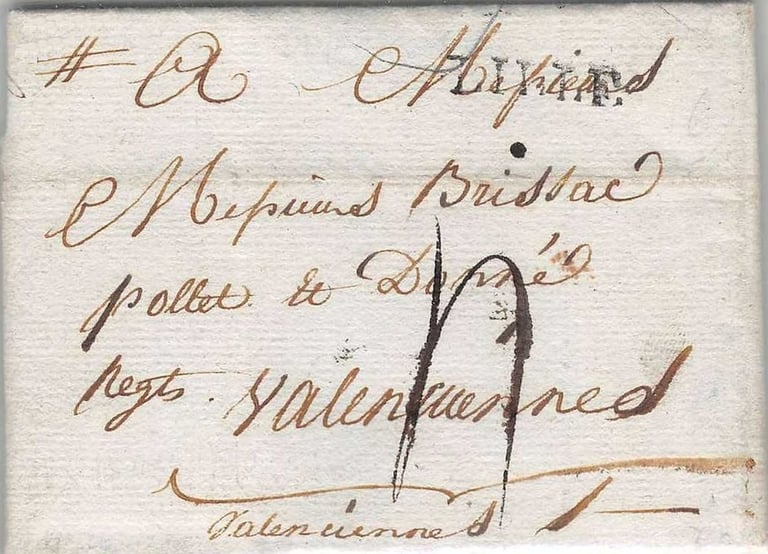 A Messieurs LILLE.
Messieurs Brissac
pollet et Donné
Negts. Valenciennes
Valenciennes